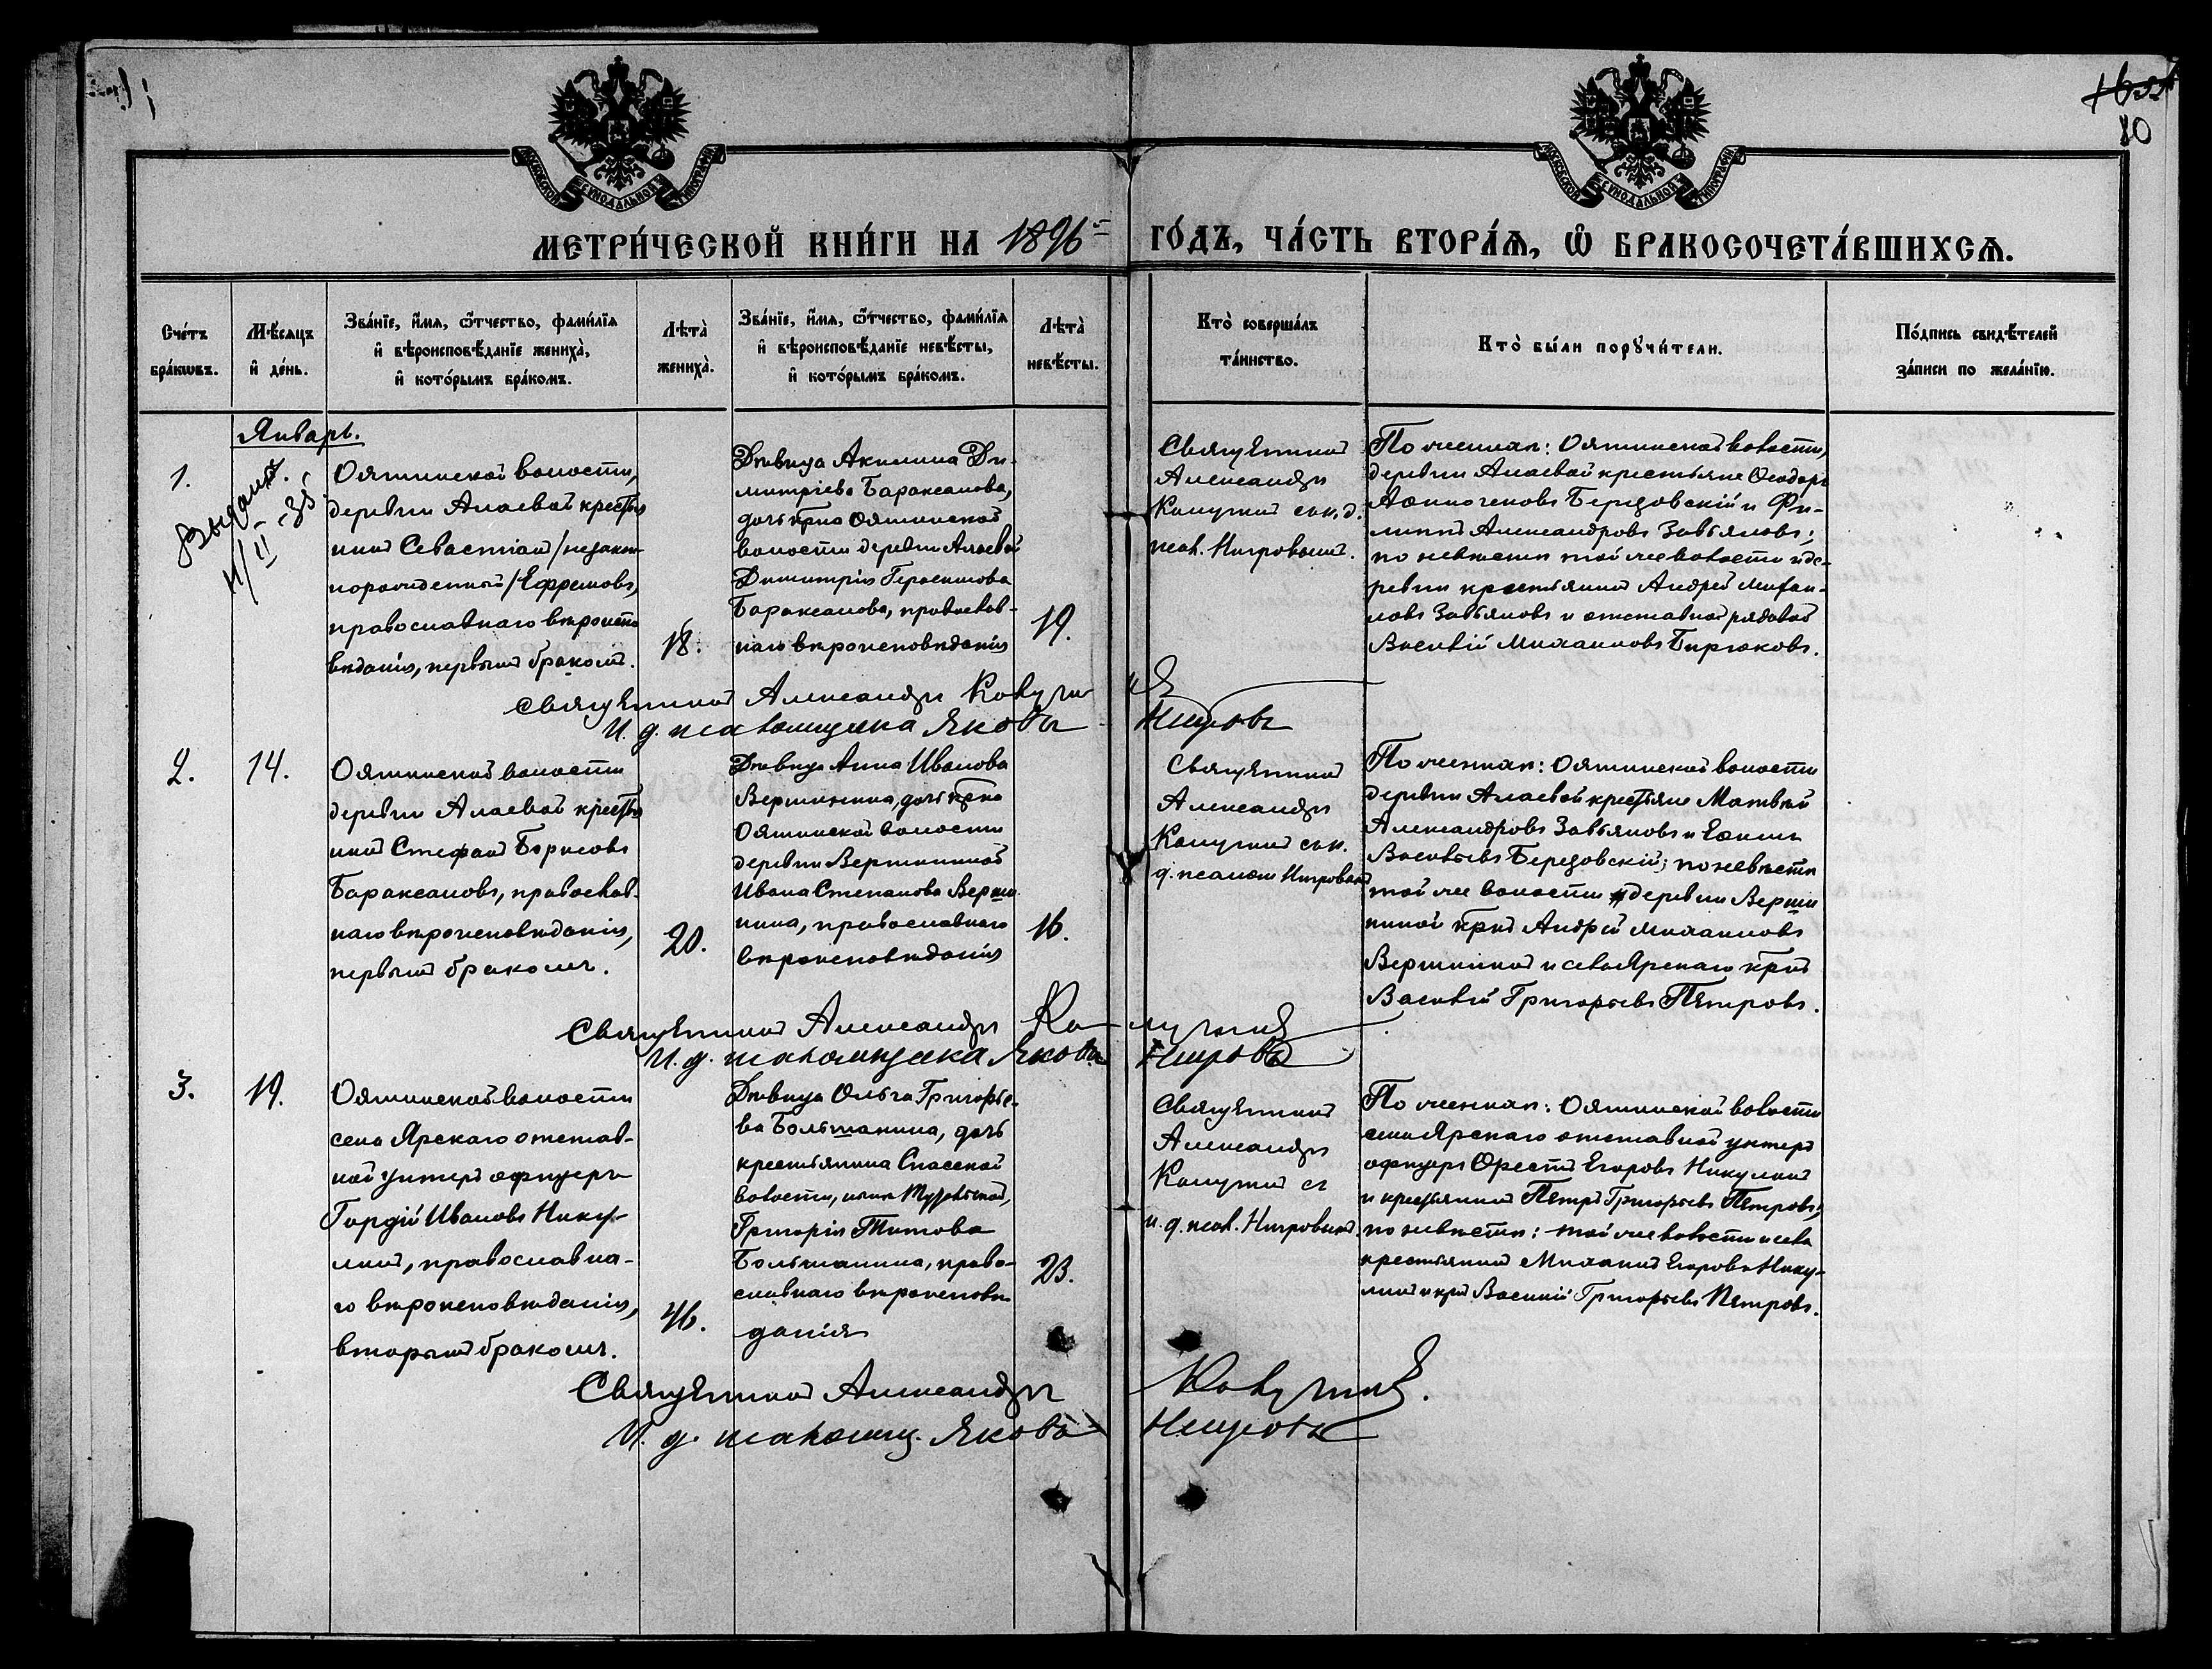 МОСКОВСКОЙ СѴНОДАЛЬНОЙ ТИПОГРАФІИ
МОСКОВСКОЙ СѴНОДАЛЬНОЙ ТИПОГРАФІИ
80
МЕТРИ́ЧЕСКОЙ КНИ́ГИ НА 1896й ГО́ДЪ, ЧА́СТЬ ВТОРА́Ѧ, Ѡ БРАКОСОЧЕТА́ВШИХСѦ.
Сче́тъ
бра́кѡвъ.
Мѣ́сѧцъ
и҆ де́нь.
Зва́нїе, и҆́мѧ, ѻ҆́тчество, фами́лїѧ
и҆ вѣроисповѣ́данїе жениха̀,
и҆ кото́рымъ бра́комъ.
Лѣта̀
жениха̀.
Зва́нїе, и҆́мѧ, ѻ҆́тчество, фами́лїѧ
и҆ вѣроисповѣ́данїе невѣ́сты,
и҆ кото́рымъ бра́комъ.
Лѣта̀
невѣ́сты.
Кто̀ соверша́лъ
та́инство.
Кто̀ бы́ли порꙋчи́тели.
По́дпись свидѣ́телей
за́писи по жела́нїю.
Январь.
1.
Ояшинской волости,
деревни Алаевой крестья
нинъ Севастіанъ /незакон
норожденный/ Ефремовъ,
православнаго вѣроиспо
вѣданія, первымъ бракомъ.
18.
Дѣвица Акилина Ди-
митріева Бараксанова,
дочь крна Ояшинской
волости деревни Алаевой
Димитрія Герасимова
Бараксанова, православ-
наго вѣроисповѣданія
19.
Священникъ
Александръ
псал. Нигровымъ.
По женихѣ: Ояшинской волости,
деревни Алаевой крестьяне Ѳеодоръ
Березовскій и Фи-
липпъ Александровъ Завьяловъ;
по невѣстѣ той же волости и де-
ревни крестьянинъ Андрей Михаи-
ловъ Завьяловъ и отставной рядовой
Василій Михаиловъ Бирюковъ.
Священникъ Александръ
И. д. псаломщика Яковъ Нигровъ
2.
14.
Ояшинской волости
деревни Алаевой крестья
нинъ Стефанъ Борисовъ
Бараксановъ, православ-
наго вѣроисповѣданія,
первымъ бракомъ.
20.
Дѣвица Анна Иванова
Вершинина, дочь крна
Ояшинской волости
деревни Вершининой
Ивана Степанова Верши
нина, православнаго
вѣроисповѣданія
16.
Священникъ
Александръ
д. псалом Нигровымъ
По женихѣ: Ояшинской волости
деревни Алаевой крестьяне Матвѣй
Александровъ Завьяловъ и
Васильевъ Березовскій; по невѣстѣ
той же волости деревни Верши
ниной крнъ Андрей Михаиловъ
Вершининъ и села Ярскаго крнъ
Василій Григорьевъ Петровъ.
Священникъ Александръ
И. д. псаломщика Яковъ Нигровъ
3.
19.
Ояшинской волости
села Ярскаго отстав-
ной унтеръ офицеръ
Гордій Ивановъ Нику-
линъ, православна-
го вѣроисповѣданія,
вторымъ бракомъ.
46.
Дѣвица Ольга Григорье-
ва Большанина, дочь
крестьянина Спасской
волости,
Григорія Титова
Большанина, право-
славнаго вѣроисповѣ
данія
23.
Священникъ
Александръ
и. д. псал. Нигровымъ
По женихѣ: Ояшинской волости
села Ярскаго отставной унтеръ
офицеръ Орестъ Егоровъ Никулинъ
и крестьянинъ Петръ Григорьевъ Петровъ;
по невѣстѣ: той же волости и села
крестьянинъ Михаилъ Егоровъ Нику-
линъ и крнъ Василій Григорьевъ Петровъ.
Священникъ Александръ
И. д. псаломщ. Яковъ Нигровъ